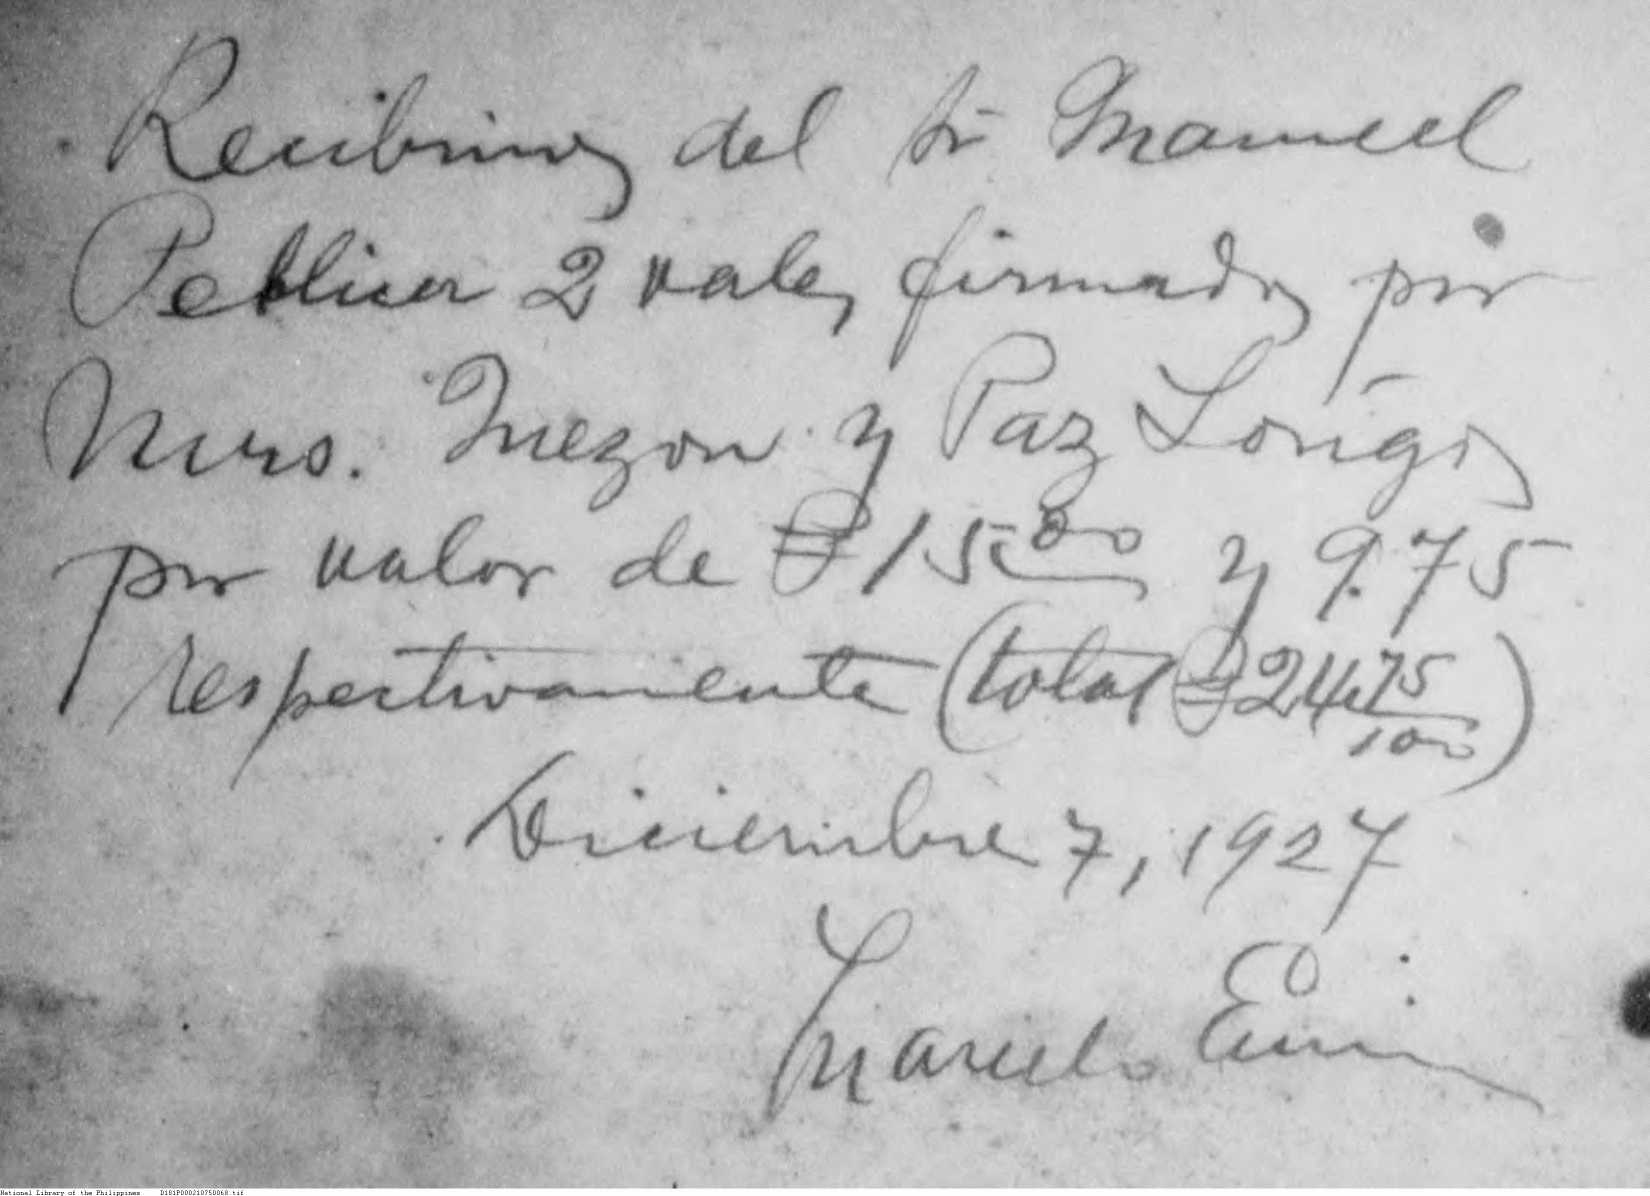 Recibimos del Sr Manuel
Pellicer 2 vales firmados por
Mrs. Inezon y Paz Longos
por valor de ₱15 00 y 9.75
respectivamente (total ₱24.75/100)
Diciembre 7, 1927
Marcelo
National Library of the Philippines D181P000210750068.tif